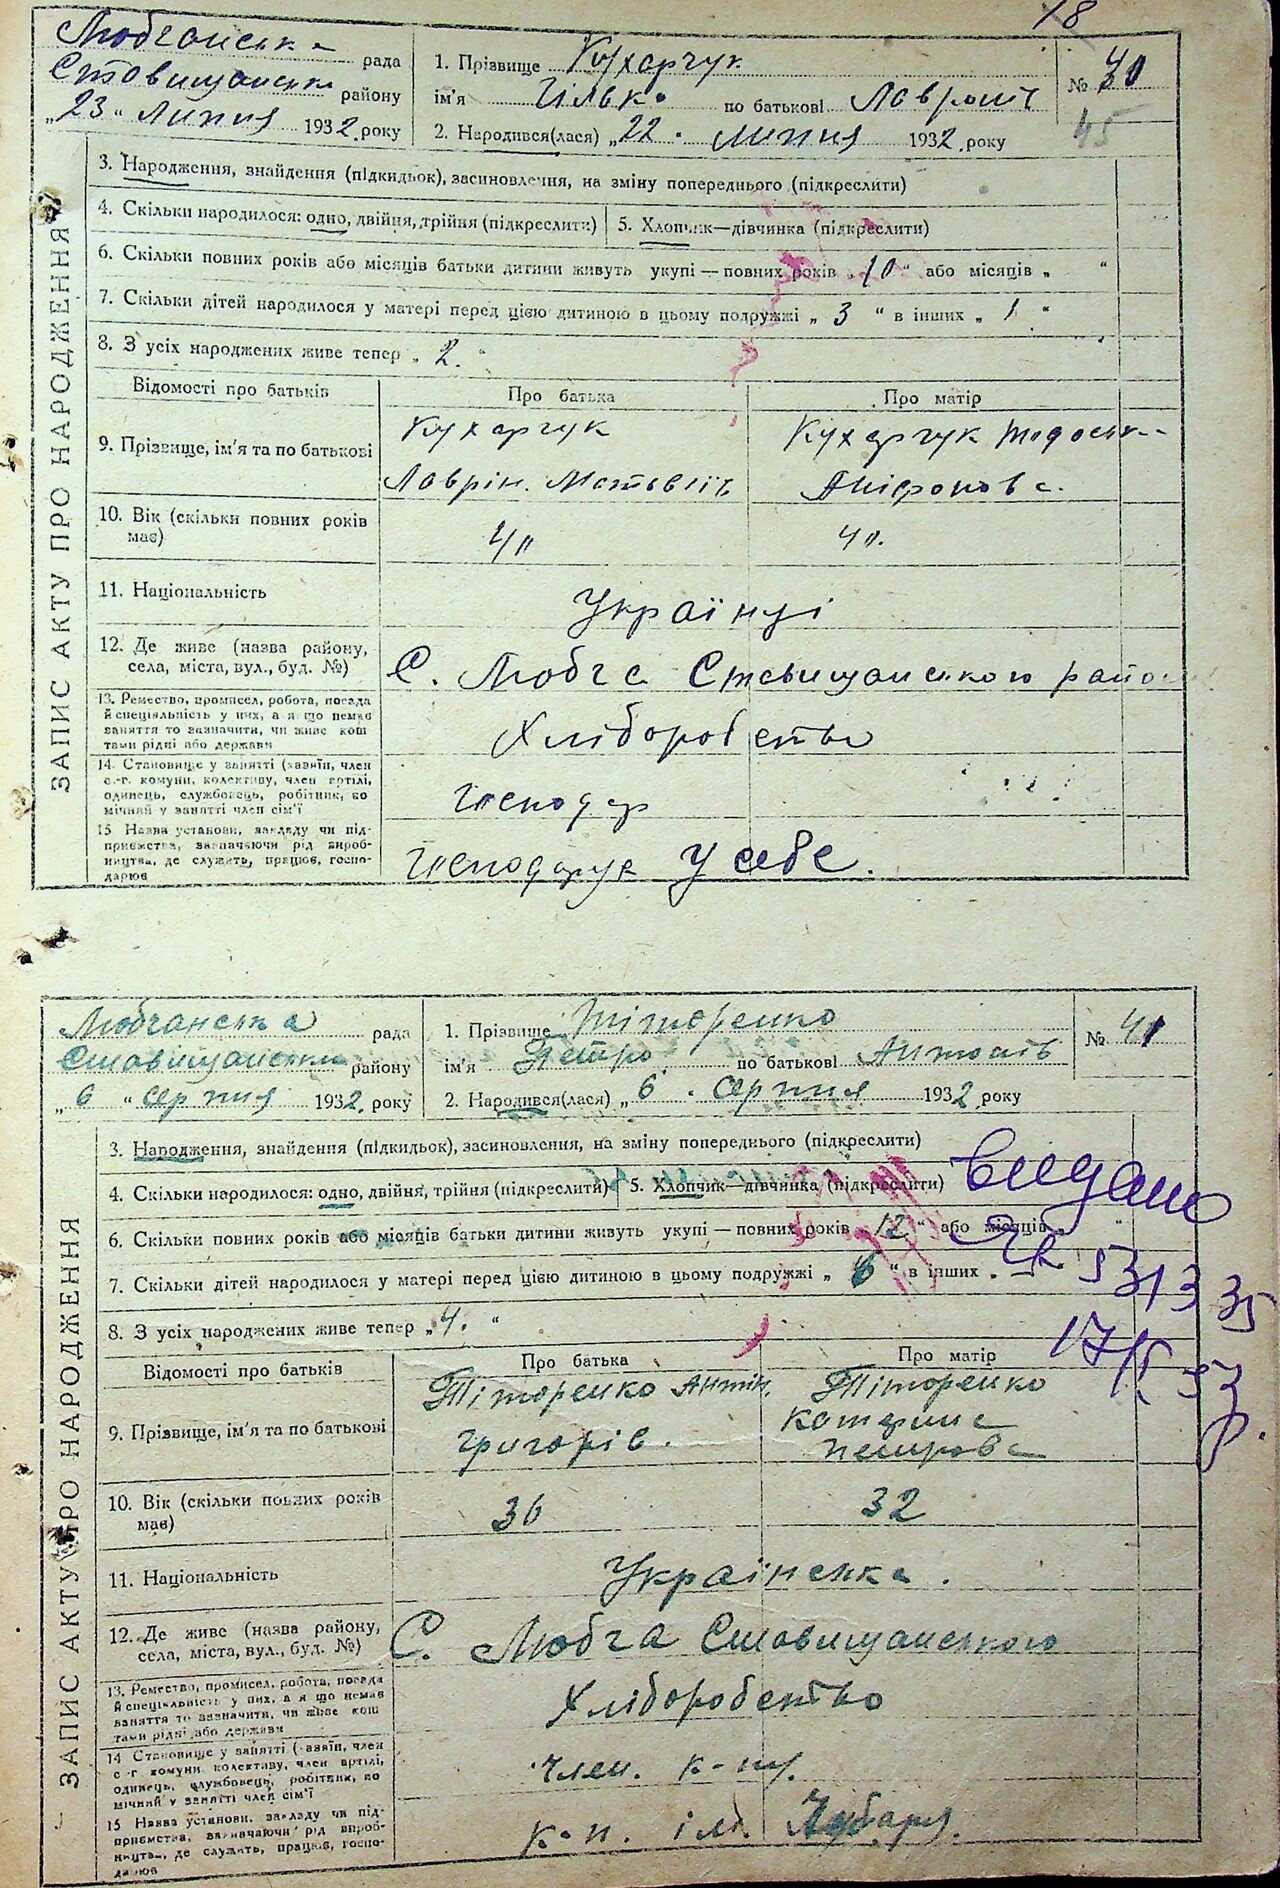 18
Любчанська рада
Ставищанськ району
„23“ Липня 1932 року
1. Прізвище Кухарчук
ім'я Ілько по батькові Лаврінів
2. Народився(лася) „22. липня 1932 року
№ 40
45
ЗАПИС АКТУ ПРО НАРОДЖЕННЯ
3. Народження, знайдення (підкидьок), засиновлення, на зміну попереднього (підкреслити)
4. Скільки народилося: одно, двійня, трійня (підкреслити) 5. Хлопчик—дівчинка (підкреслити)
6. Скільки повних років або місяців батьки дитини живуть укупі — повних років „10“ або місяців „ “
7. Скільки дітей народилося у матері перед цією дитиною в цьому подружжі „3“ в інших „1“
8. З усіх народжених живе тепер „2.“
Відомості про батьків Про батька Про матір
9. Прізвище, ім'я та по батькові
Кухарчук
Лаврін. Матвеїв
Кухарчук Тодоська
10. Вік (скільки повних років має) 40 40.
11. Національність Українці
12. Де живе (назва району, села, міста, вул., буд. №) С. Любча Ставищанського райо
13. Ремество, промисел, робота, посада
й спеціяльність у них, а якщо немає
заняття то зазначити, чи живе кош
тами рідні або держави
Хліборобство
14. Становище у занятті (хазяїн, член
с.-г. комуни, колективу, член артілі,
одинець, службовець, робітник, по
мічний у занятті член сім'ї
Господар
15 Назва установи, закладу чи під-
приємства, зазначаючи рід вироб-
ництва, де служить, працює, госпо-
дарює
Господарує у себе.
Любчанська рада
Ставищанськ району
„6“ серпня 1932 року
1. Прізвище Тіторенко
ім'я Петро по батькові Антонів
2. Народився(лася) „6. серпня 1932 року
№ 41
ЗАПИС АКТУ ПРО НАРОДЖЕННЯ
3. Народження, знайдення (підкидьок), засиновлення, на зміну попереднього (підкреслити)
4. Скільки народилося: одно, двійня, трійня (підкреслити) 5. Хлопчик—дівчинка (підкреслити)
видано
6. Скільки повних років або місяців батьки дитини живуть укупі — повних років „12“ або місяців „ “
7. Скільки дітей народилося у матері перед цією дитиною в цьому подружжі „6“ в інших „—“
531335
8. З усіх народжених живе тепер „4.“
Відомості про батьків Про батька Про матір
9. Прізвище, ім'я та по батькові
Тіторенко Антін.
Григорів.
Тіторенко
Катерина
Петрова
10. Вік (скільки повних років має) 36 32
11. Національність Українська.
12. Де живе (назва району, села, міста, вул., буд. №) С. Любча Ставищанського
13. Ремество, промисел, робота, посада
й спеціяльність у них, а якщо немає
заняття то зазначити, чи живе кош
тами рідні або держави
Хліборобство
14 Становище у занятті (хазяїн, член
с.-г комуни колективу, член артілі,
одинець, службовець, робітник, по
мічний у занятті член сім'ї
член. к-пу.
15 Назва установи, закладу чи під-
приємства, зазначаючи рід вироб-
ництва, де служить, працює, госпо-
дарює
к-п. ім. Чубаря.